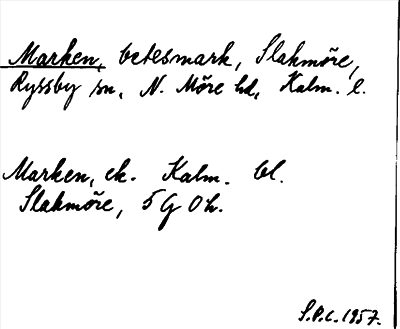 Marken, betesmark, Slakmöre,
Ryssby sn, N. Möre hd, Kalm. l.
Marken, ek. Kalm. bl.
Slakmöre, 5 G 0 h.
S.P.C. 1957.